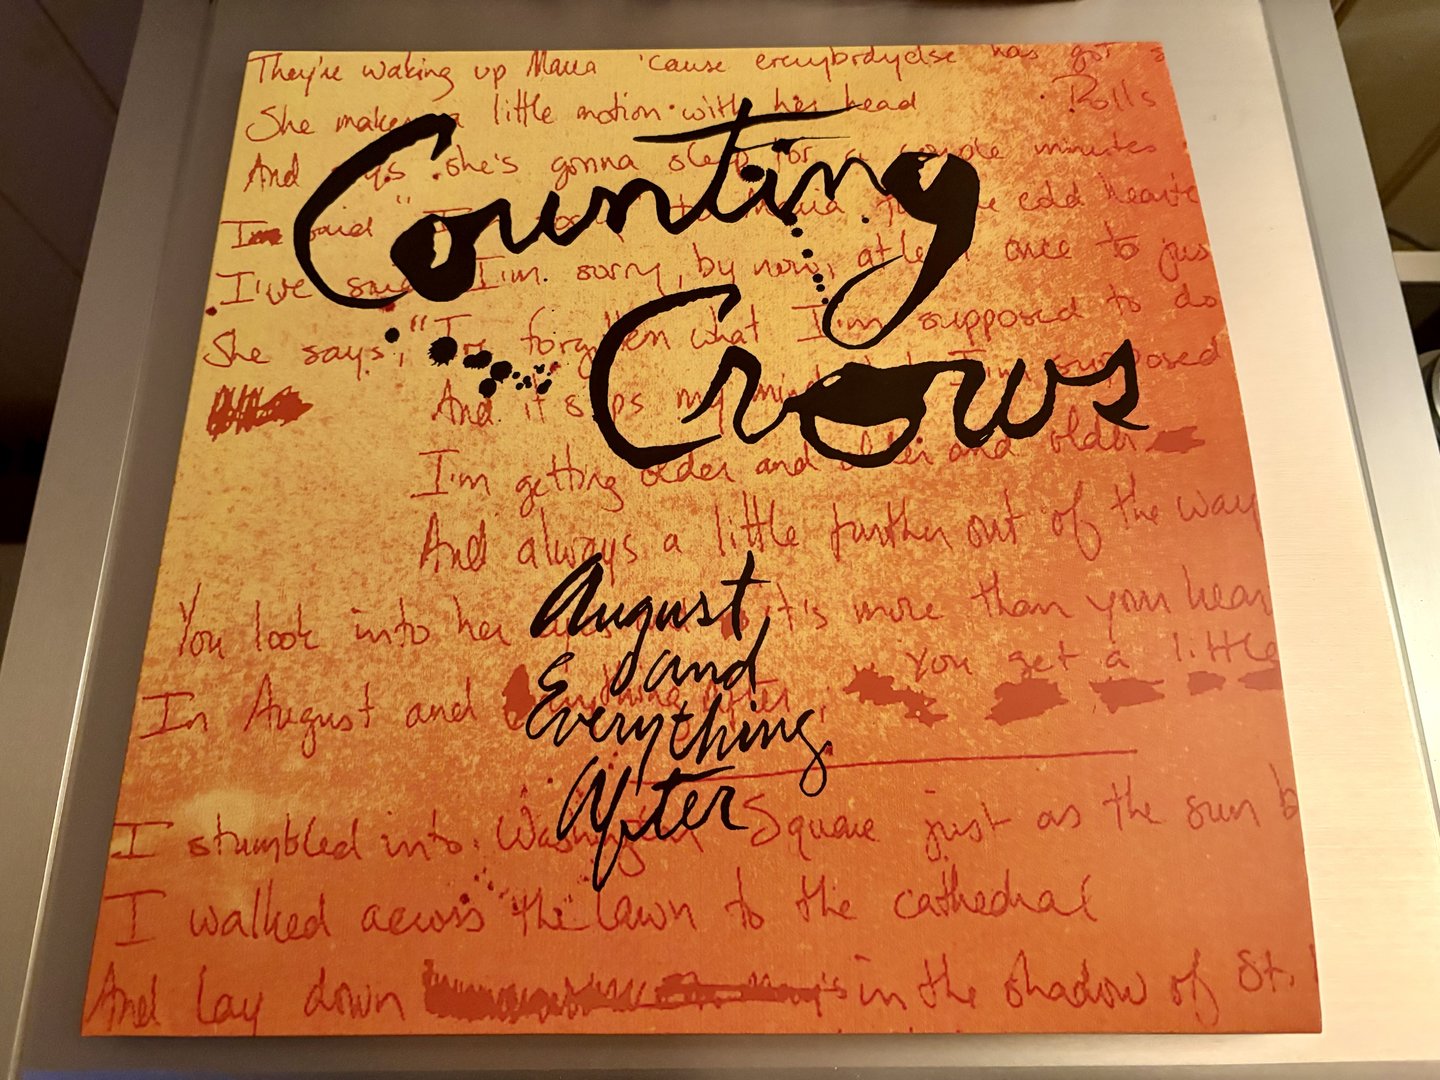 They're waking up Maria 'cause everybodyelse has got s
She makes a little motion with her head Rolls
And says she's gonna sleep for a couple minutes
I'm said "I to Maria for the cold hearte
I've said I'm sorry, by now, at least once to jus
She says, "I've forgotten what I'm supposed to do
And it slips my mind what I'm supposed
I'm getting older and older and older
And always a little further out of the way
You look into her it's more than your hear
You get a little
In August and everything after,
I stumbled into Washington Square just as the sun b
I walked across the lawn to the cathedral
And lay down in the shadow of St.
Counting
Crows
August
& and
Everything
After